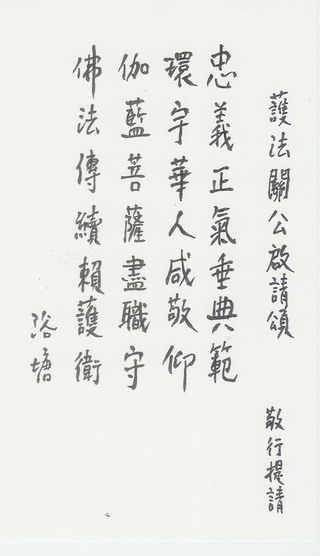 護法關公啟請頌
敬行提請
忠義正氣垂典範
環宇華人咸敬仰
伽藍菩薩盡職守
佛法傳續賴護衛
浴塘